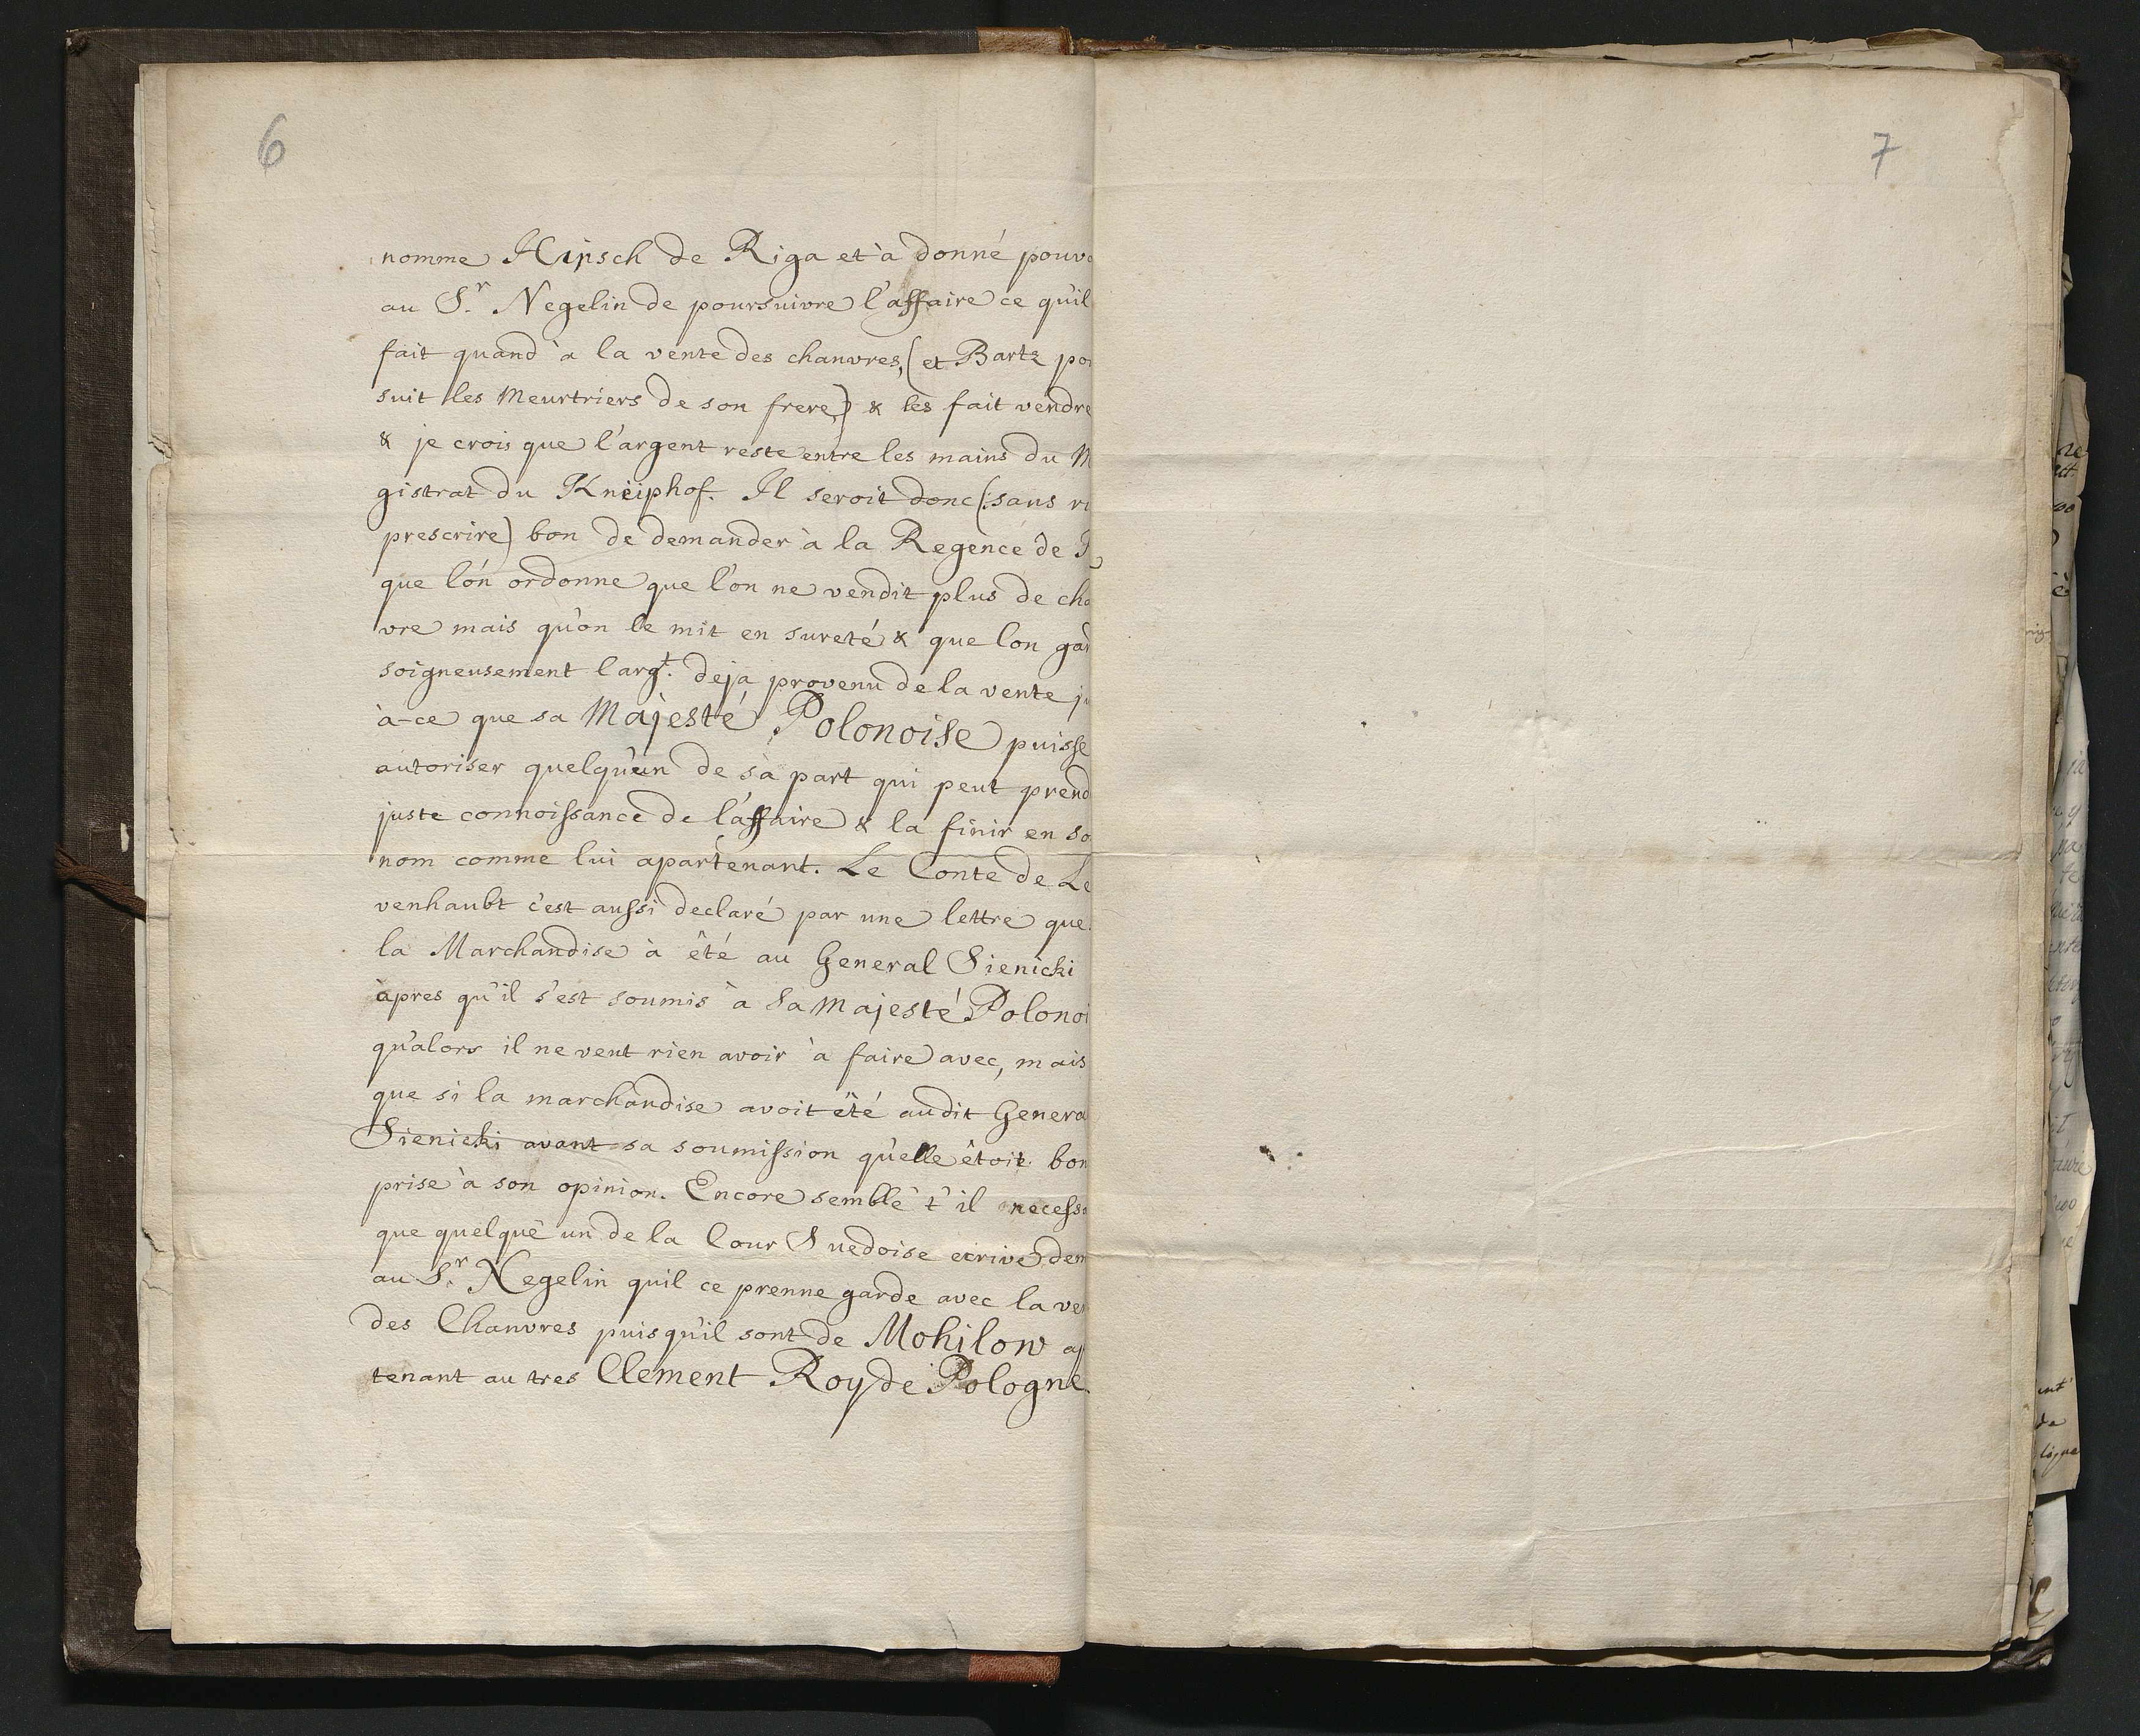 6
7
nomme Hipsch de Riga et à donné pouvo
au S.r Negelin de poursuivre l'affaire ce qu'il
fait quand à la vente des chanvres, (et Bartz po
suit les Meurtriers de son frere) & les fait vendre
& je crois que l'argent reste entre les mains du M
gistrat du Kneiphof. Il seroit donc (:sans
prescrire) bon de demander à la Regence de
que l'on ordonne que l'on ne vendit plus de cha
vre mais qu'on le mit en sureté & que l'on gar
soigneusement l'argt. deja provenu de la vente ju
à-ce que sa Majesté Polonoise puisse
autoriser quelqu'un de sà part qui peut prend
juste connoissance de l'affaire & la finir en so
nom comme lui apartenant. Le Conte de Le
venhaubt c'est aussi declaré par une lettre que
la Marchandise à êté au General Sienicki
àpres qu'il s'est soumis à Sa Majesté Polonoi
qu'alors il ne veut rien avoir à faire avec, mais
que si la marchandise avoit êté audit Genera
Sienicki avant sa soumission qu'elle êtoit bon
prise à son opinion. Encore semble t'il necessa
que quelque un de la Cour Suedoise ecrive dem
au S.r Negelin qu'il ce prenne garde avec la ven
des Chanvres puisqu'il sont de Mohilow ap
tenant au tres Clement Roy de Pologne.